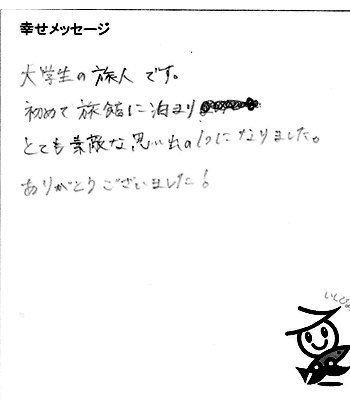 幸せメッセージ
大学生の旅人です。
初めて旅館に泊まり
とても素敵な思い出の1つになりました。
ありがとうございました！